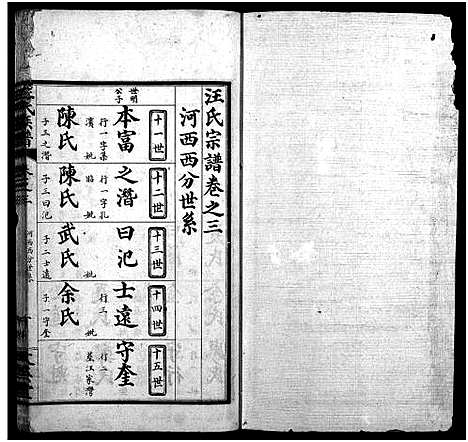 汪氏宗譜卷之三
河西西分世系
十一世
十二世
十三世
十四世
十五世
世明
公子
本富
之潛
曰氾
士遠
守奎
行一
行一字孔
行三
行二
墓江家灣
妣
妣
妣
妣
陳氏
陳氏
武氏
余氏
子三之潛
子三曰氾
子二士遠
子一守奎
河西西分世系